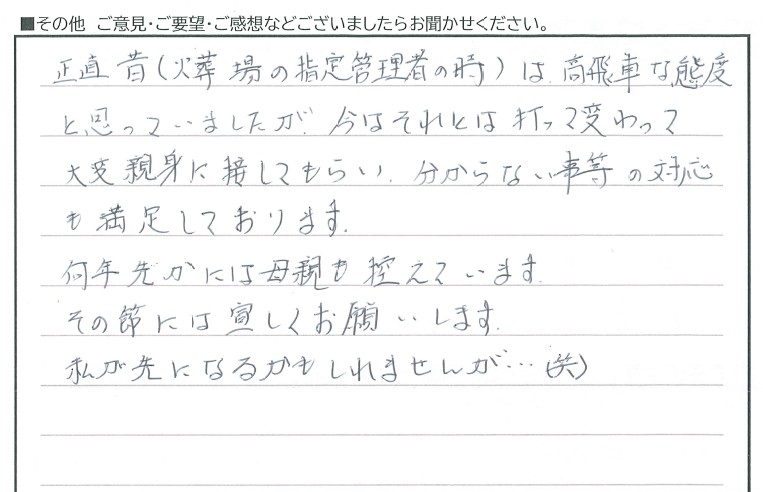 ■その他 ご意見・ご要望・ご感想などございましたらお聞かせください。
正直昔(火葬場の指定管理者の時)は、高飛車な態度
と思っていましたが、今はそれとは打って変わって
大変親身に接してもらい、分からない事等の対応
も満足しております。
何年先かには母親も控えています。
その節には宜しくお願いします。
私が先になるかもしれませんが…(笑)